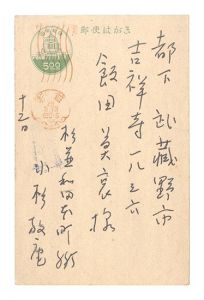 郵便はがき
500
都下 武蔵野市
吉祥寺一八三六
飯田 美哉 様
十二日
杉並和田本町
小杉